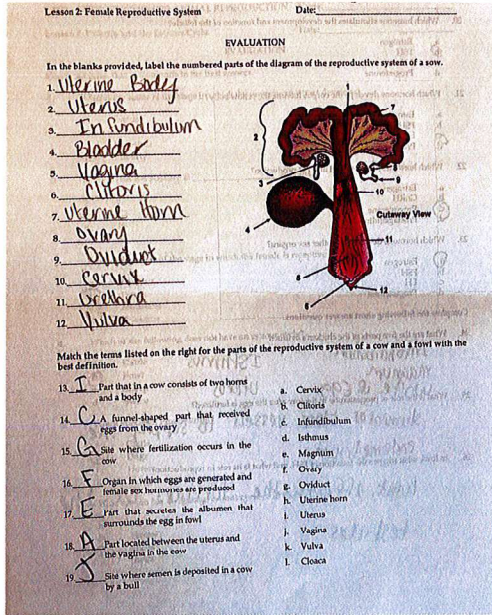 Lesson 2: Female Reproductive System Date:
EVALUATION
In the blanks provided, label the numbered parts of the diagram of the reproductive system of a sow.
1. Uterine Body
2. Uterus
3. Infundibulum
4. Bladder
5. Vagina
6. Clitoris
7. Uterine Horn
8. Ovary
9. Oviduct
10. Cervix
11. Urethra
12. Vulva
1
2
7
3
8
9
10
4
Cutaway View
11
6
12
5
Match the terms listed on the right for the parts of the reproductive system of a cow and a fowl with the
best definition.
13. I Part that in a cow consists of two horns
and a body
14. C A funnel-shaped part that received
eggs from the ovary
15. G Site where fertilization occurs in the
cow
16. F Organ in which eggs are generated and
female sex hormones are produced
17. E Part that secretes the albumen that
surrounds the egg in fowl
18. A Part located between the uterus and
the vagina in the cow
19. J Site where semen is deposited in a cow
by a bull
a. Cervix
b. Clitoris
c. Infundibulum
d. Isthmus
e. Magnum
f. Ovary
g. Oviduct
h. Uterine horn
i. Uterus
j. Vagina
k. Vulva
l. Cloaca